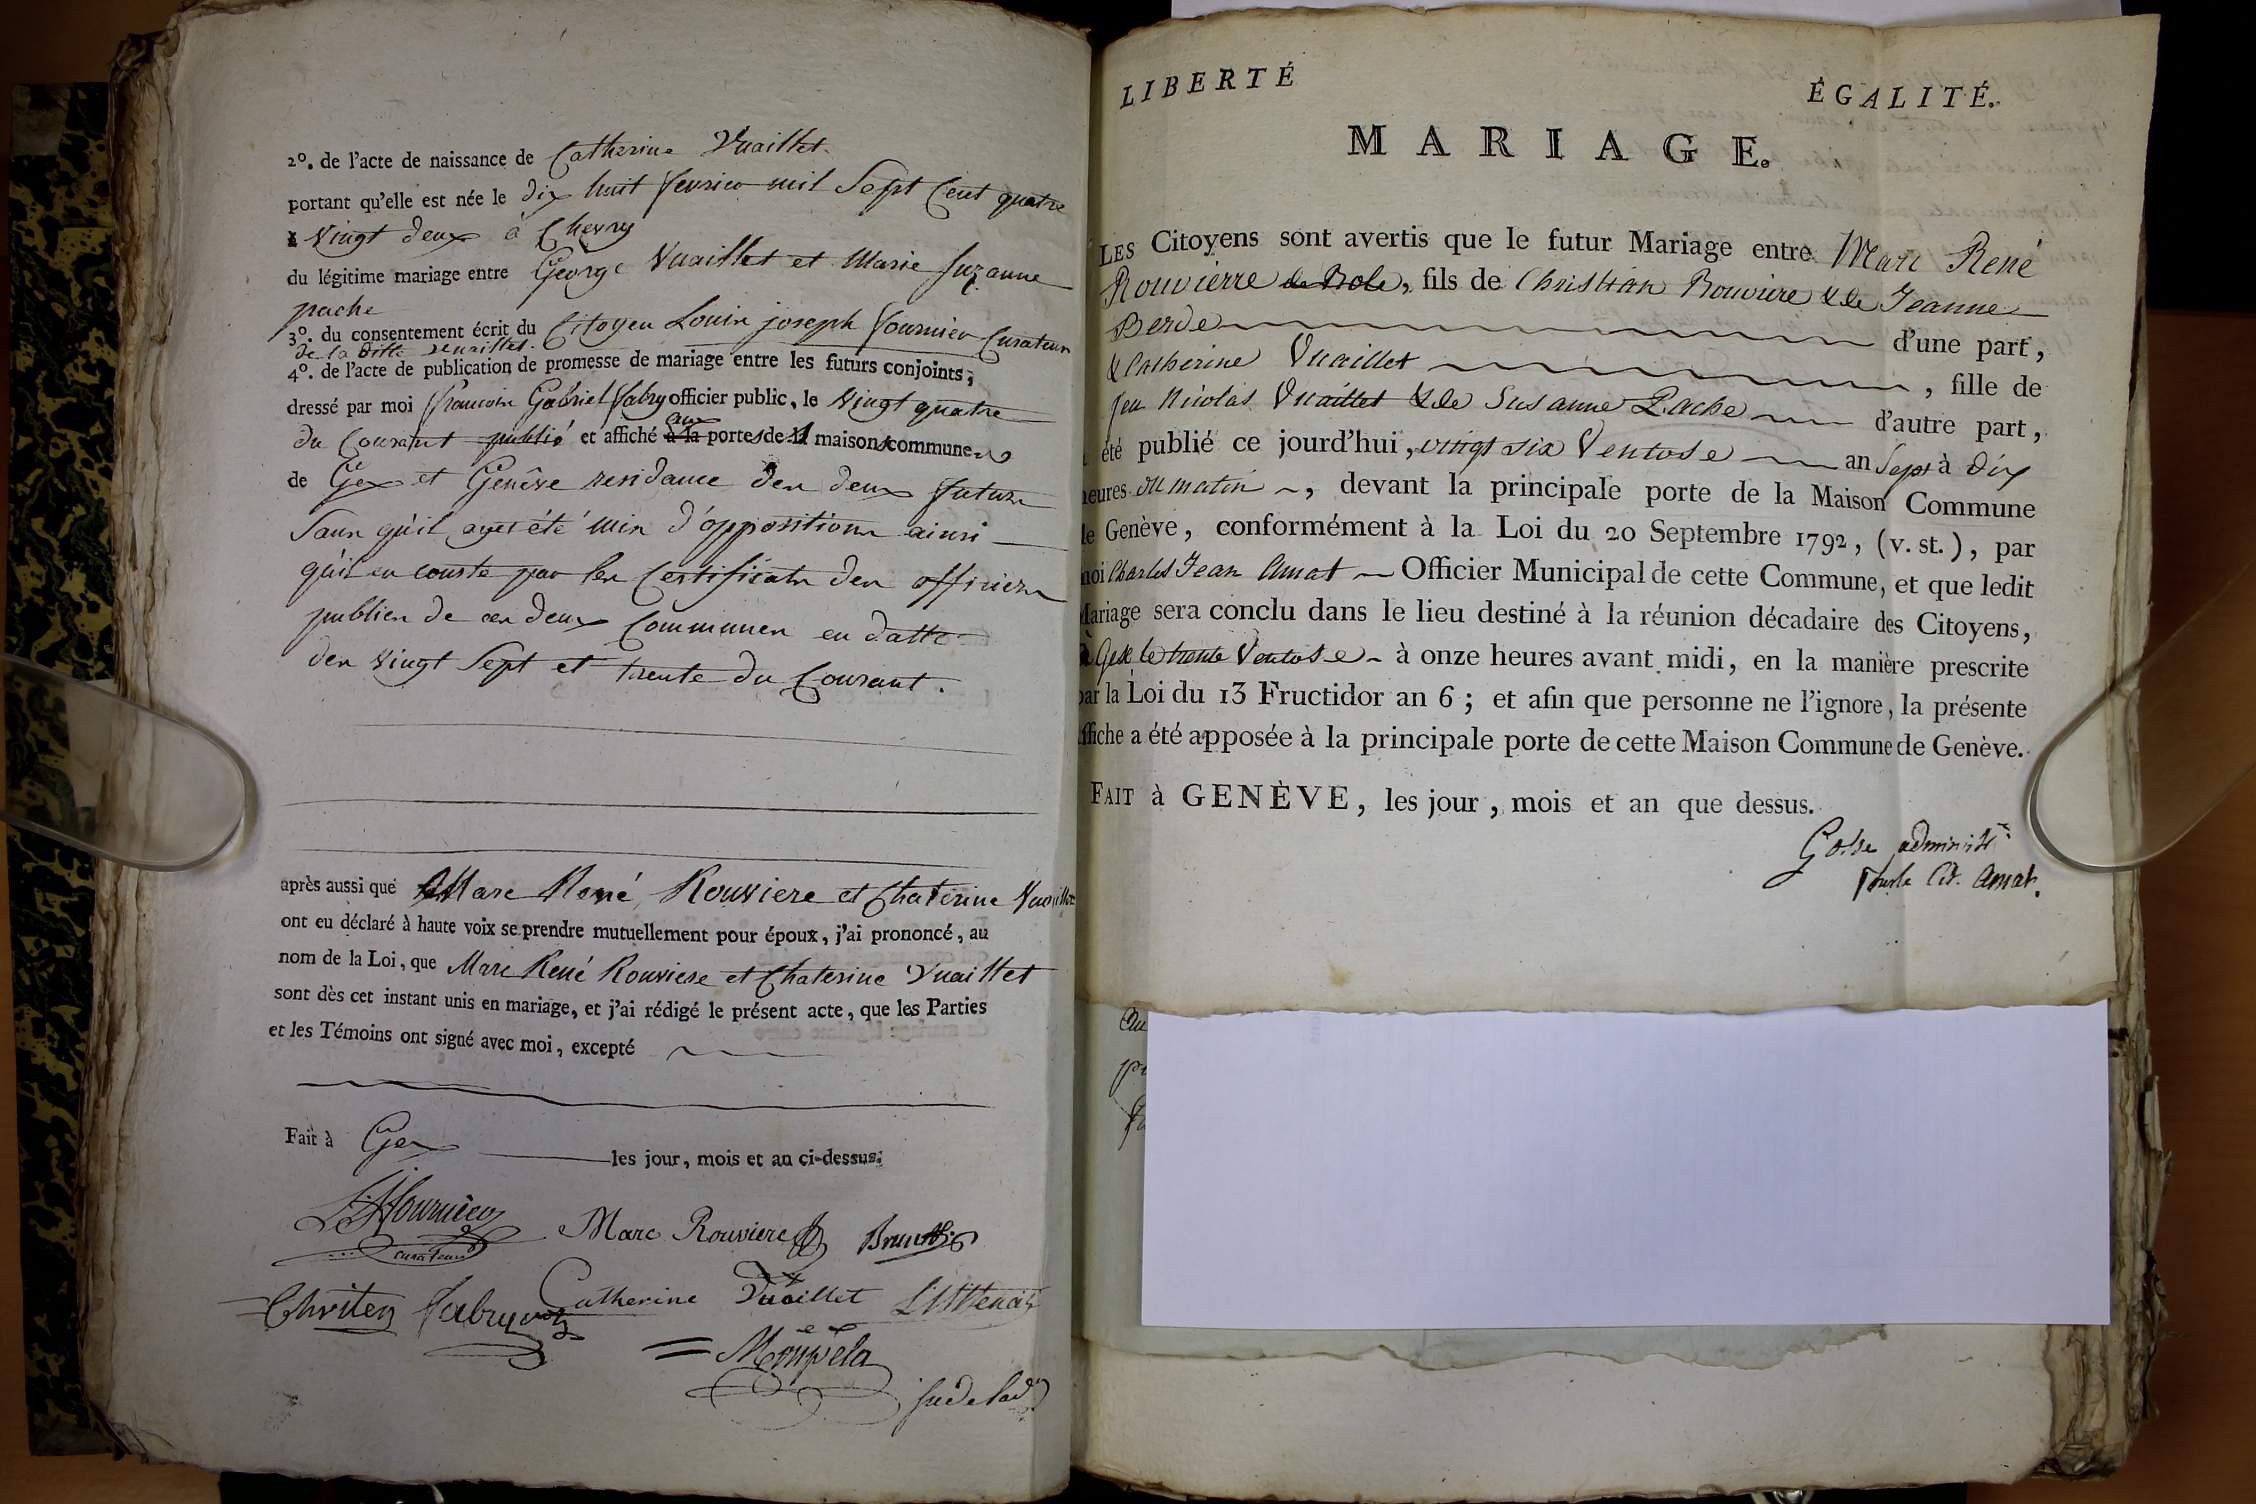 2º. de l'acte de naissance de Catherine Vuaillet
portant qu'elle est née le dix huit fevrier mil Sept Cent quatre
vingt deux à Chevry
du légitime mariage entre George Vuaillet et Marie Suzanne
pache
3º. du consentement écrit du Citoyen Louis joseph fournier Curateur
de la ditte vuaillet.
4º. de l'acte de publication de promesse de mariage entre les futurs conjoints;
dressé par moi françois Gabriel fabry officier public, le vingt quatre
du Courant publié et affiché aux à la portes de maisons communes
de Gex et Genêve residance des deux futurs
Sans qu'il ayet été mis d'oppositions ainsi
qu'il en conste par les Certificats des officiers
publics de ces deux Communes en datte
des vingt Sept et trente du Courant.
après aussi que Marc René Rouviere et Chaterine Vuaillet
ont eu déclaré à haute voix se prendre mutuellement pour époux, j'ai prononcé, au
nom de la Loi, que Marc René Rouviere et Chaterine Vuaillet
sont dès cet instant unis en mariage, et j'ai rédigé le présent acte, que les Parties
et les Témoins ont signé avec moi, excepté
Fait à Gex les jour, mois et an ci-dessus.
fournier Marc Rouviere
curateur
Christen fabry Catherine Vuaillet
LIBERTÉ ÉGALITÉ.
MARIAGE.
LES Citoyens sont avertis que le futur Mariage entre Marc René
Rouvierre de Role, fils de Christian Rouviere & de Jeanne
Berde d'une part,
& Catherine Vuaillet, fille de
feu Nicolas Vuaillet & de Susanne Pache d'autre part,
été publié ce jourd'hui, vingt six Ventose an Sept à dix
heures du matin, devant la principale porte de la Maison Commune
de Genève, conformément à la Loi du 20 Septembre 1792, (v. st.), par
moi Charles Jean Amat Officier Municipal de cette Commune, et que ledit
Mariage sera conclu dans le lieu destiné à la réunion décadaire des Citoyens,
à Gex le trente Ventose à onze heures avant midi, en la manière prescrite
par la Loi du 13 Fructidor an 6; et afin que personne ne l'ignore, la présente
affiche a été apposée à la principale porte de cette Maison Commune de Genève.
FAIT à GENÈVE, les jour, mois et an que dessus.
Gosse administr
Pour le Cit. Amat.